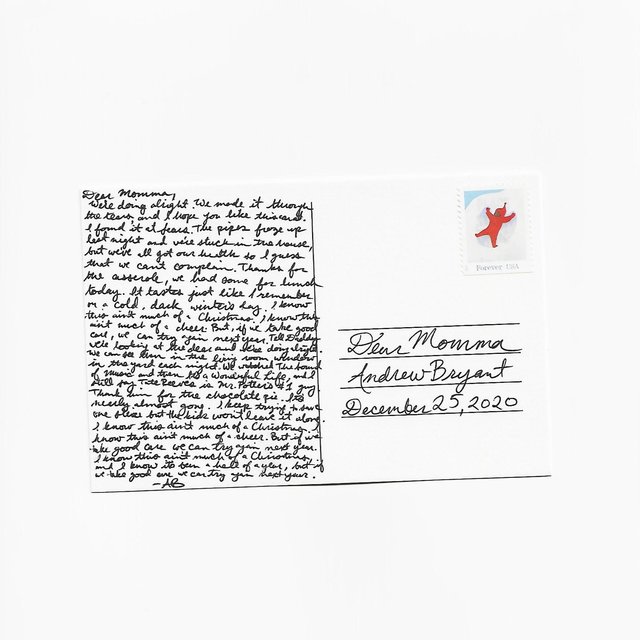 Dear Momma,
We're doing alright. We made it through
the tears, and I hope you like this card.
I found it at fears. The pipes froze up
last night and we're stuck in the house,
but we've all got our health so I guess
that we can't complain. Thanks for
the casserole, we had some for lunch
today. It tastes just like I remember
on a cold, dark winter's day. I know
this ain't much of a Christmas, I know this
ain't much of a cheer. But, if we take good
care, we can try again next year. Tell Daddy
we're looking at the deer and he's doing alright.
We can see him in the living room window
in the yard each night. We watched The Sound
of Music and then It's a Wonderful Life, and I
still say Tate Reeves is Mr. Potter's #1 guy
Thank him for the chocolate pie. It's
nearly almost gone. I keep trying to save
one slice but the kids won't leave it alone.
I know this ain't much of a Christmas. I
know this ain't much of a cheer. But if we
take good care we can try again next year.
I know this ain't much of a Christmas,
and I know it's been a hell of a year, but if
we take good care we can try again next year.
-AB
Forever USA
Dear Momma
Andrew Bryant
December 25, 2020